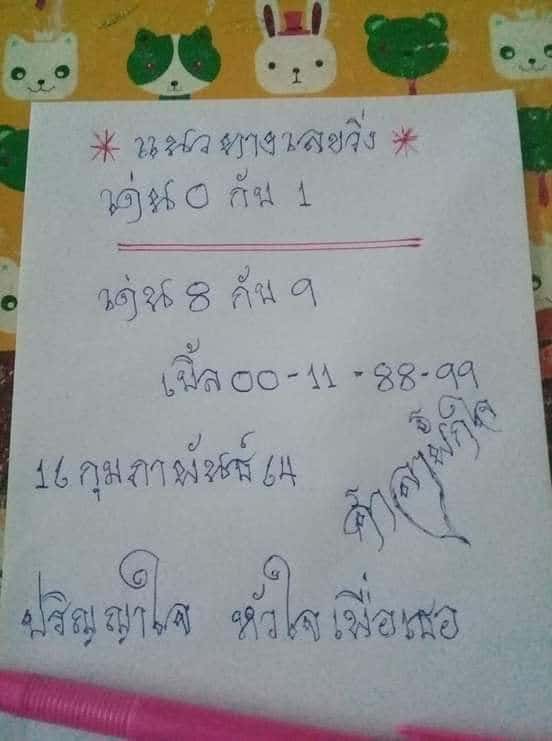 * แนวทางเลขวิ่ง *
เด่น 0 กับ 1
เด่น 8 กับ 9
เบิ้ล 00-11-88-99
16 กุมภาพันธ์ 64
ปริญญาใจ หัวใจเพื่อเธอ